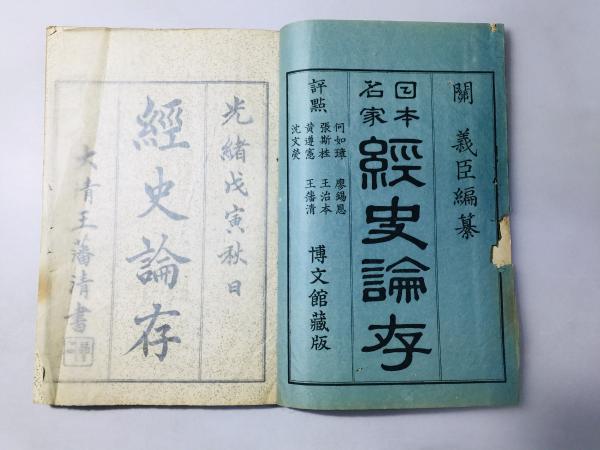 關 義臣編纂
日本名家
經史論存
何如璋 廖錫恩
張斯桂 王治本
黃遵憲 王藩清
沈文熒
評點
博文館藏版
光緒戊寅秋日
經史論存
大青王藩清書